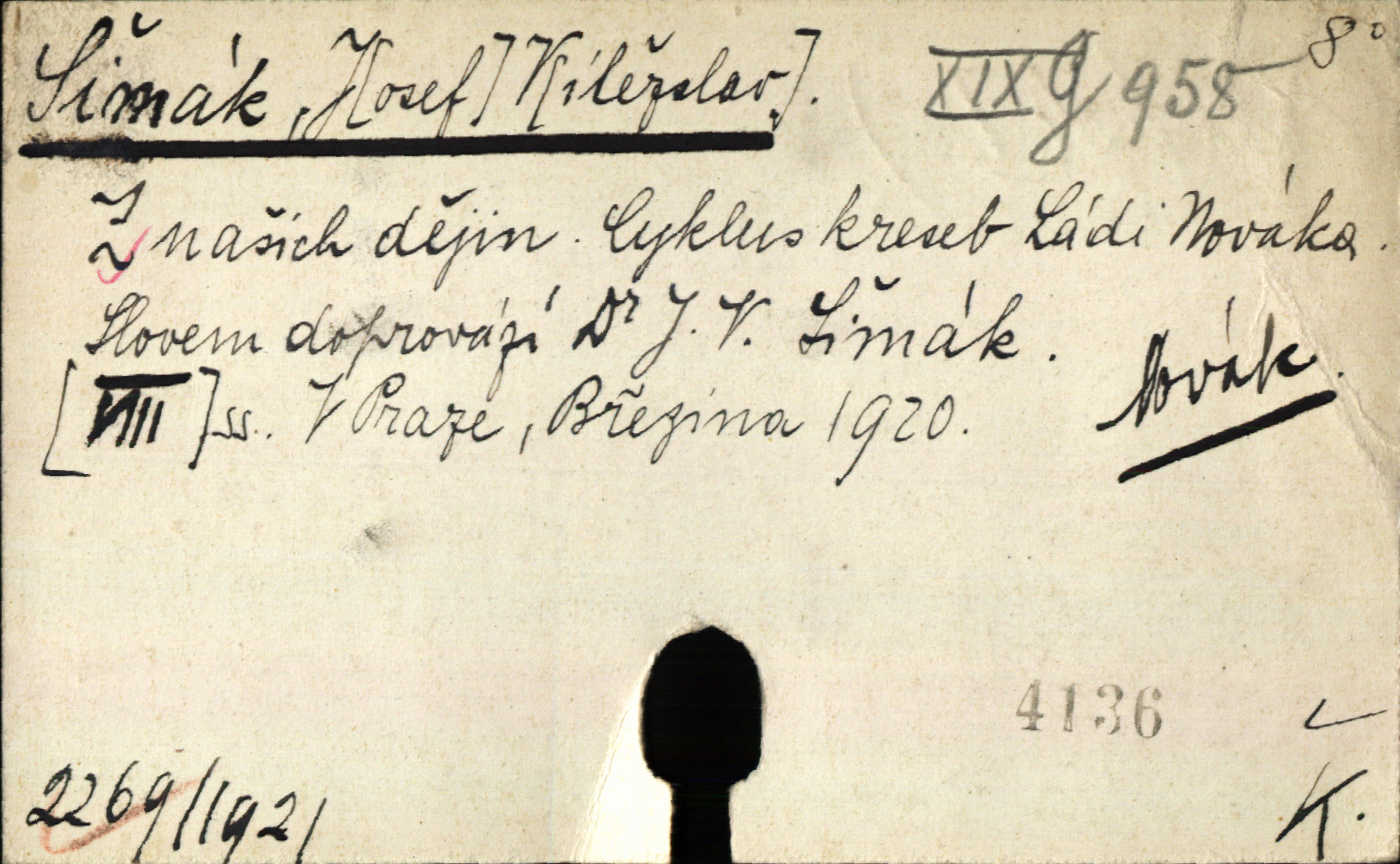 Šimák, J[osef] V[ítězslav]. XIX G 958 8°
Z našich dějin. Cyklus kreseb Ládi Nováka.
Slovem doprovází Dr J. V. Šimák.
Novák.
[VIII] ss. V Praze, Březina 1920.
4136
2269/1921
K.